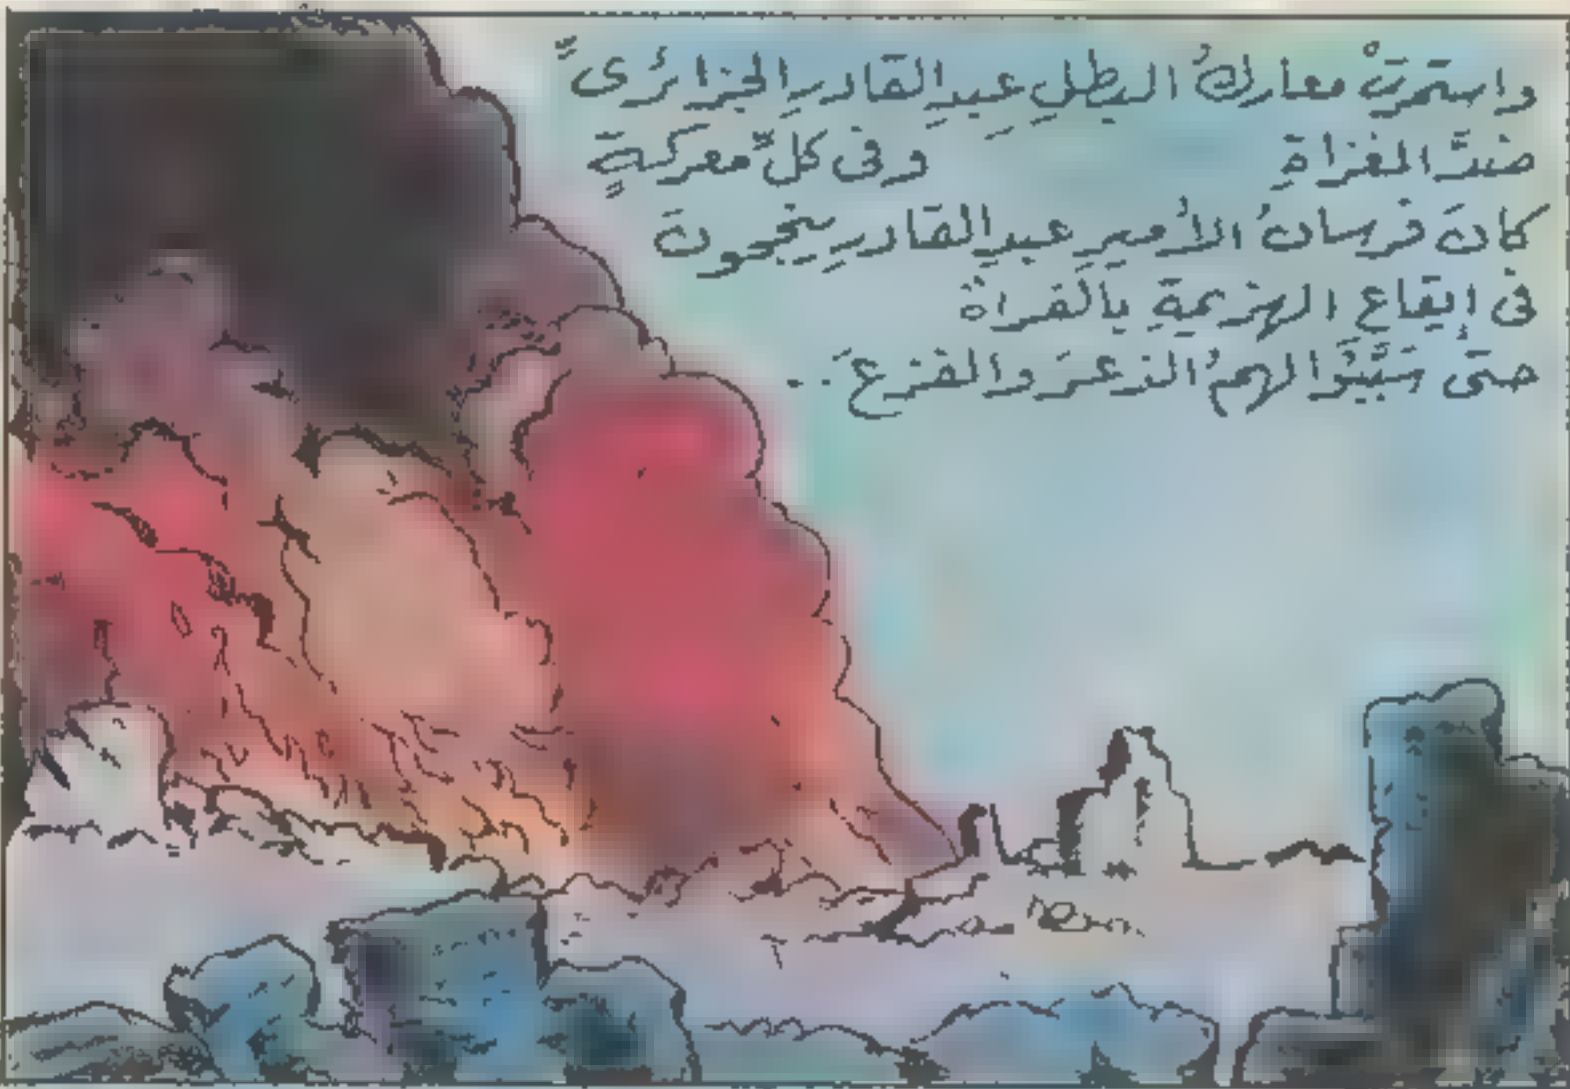 واستمرتْ معاركُ البطلِ عبدِ القادرِ الجزائرىِّ
ضدَّ الغزاةِ وفى كلِّ معركةٍ
كانَ فرسانُ الأميرِ عبدِ القادرِ ينجحونَ
فى إيقاعِ الهزيمةِ بالغزاة
حتى سَبَّبُوا لهمُ الذعرَ والفزعَ ..